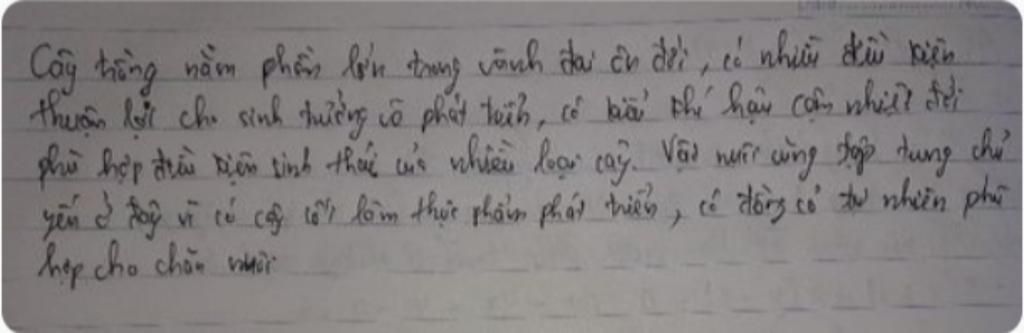 Cây trồng nằm phần lớn trong vành đai ôn đới, có nhiều điều kiện
thuận lợi cho sinh trưởng và phát triển, có kiểu khí hậu cận nhiệt đới
phù hợp điều kiện sinh thái của nhiều loại cây. Vật nuôi cũng tập trung chủ
yếu ở đây vì có cây cối làm thực phẩm phát triển, có đồng cỏ tự nhiên phù
hợp cho chăn nuôi